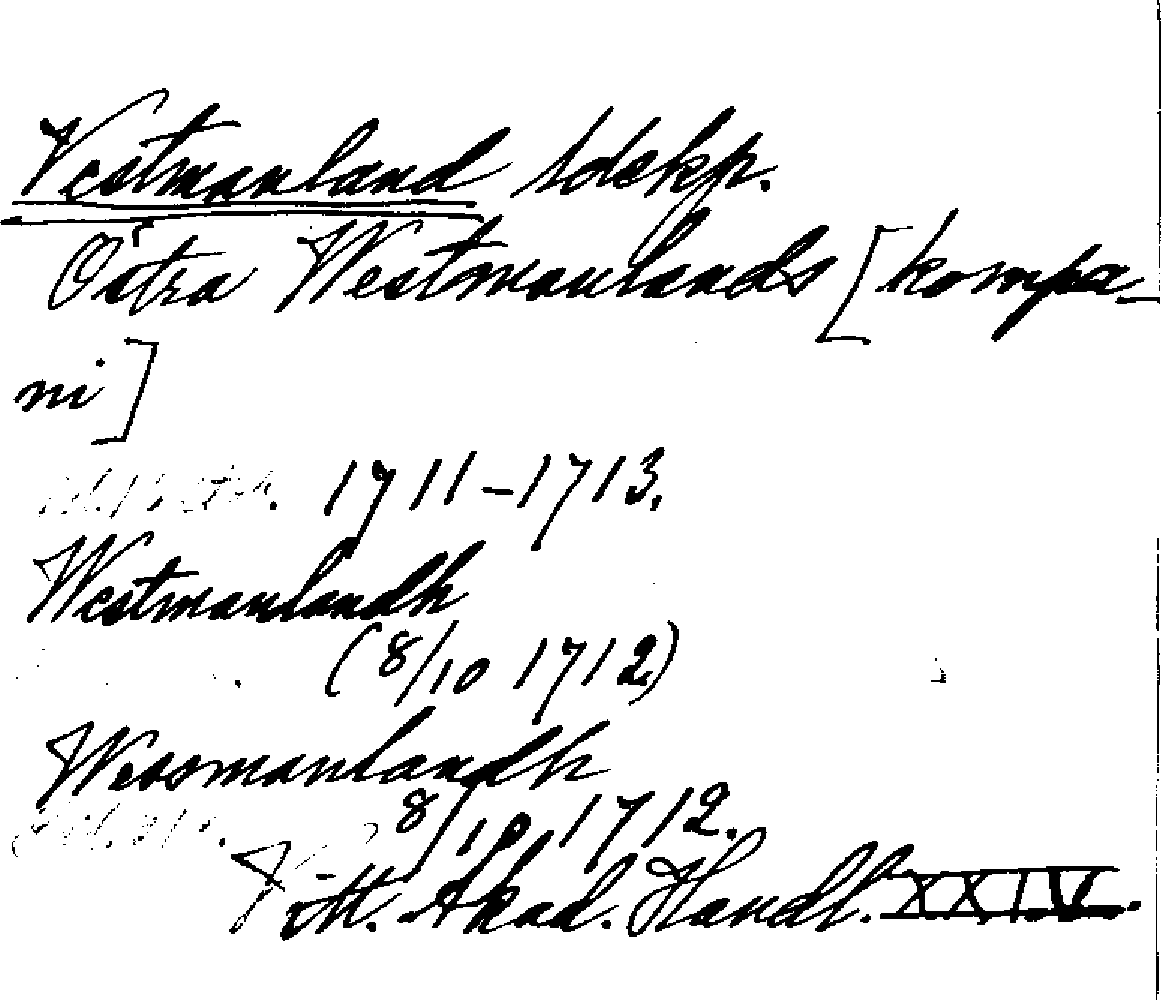 Vestmanland ldskp.
Östra Westmanlands [kompa-
ni]
1711-1713.
Westmanlandh
(8/10 1712)
Wessmanlandh
8/10 1712.
Vitt. Akad. Handl. XXIV.